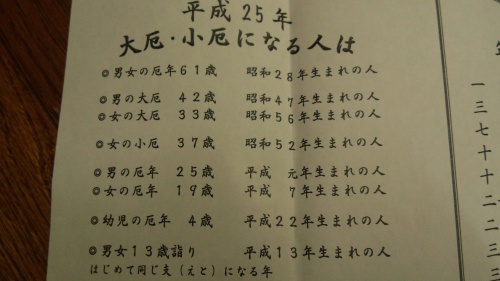 平成25年
大厄・小厄になる人は
◎男女の厄年61歳 昭和28年生まれの人
◎男の大厄 42歳 昭和47年生まれの人
◎女の大厄 33歳 昭和56年生まれの人
◎女の小厄 37歳 昭和52年生まれの人
◎男の厄年 25歳 平成 元年生まれの人
◎女の厄年 19歳 平成 7年生まれの人
◎幼児の厄年 4歳 平成22年生まれの人
◎男女13歳詣り 平成13年生まれの人
はじめて同じ支(えと)になる年
一
三
七
十
十
二
二
三
三